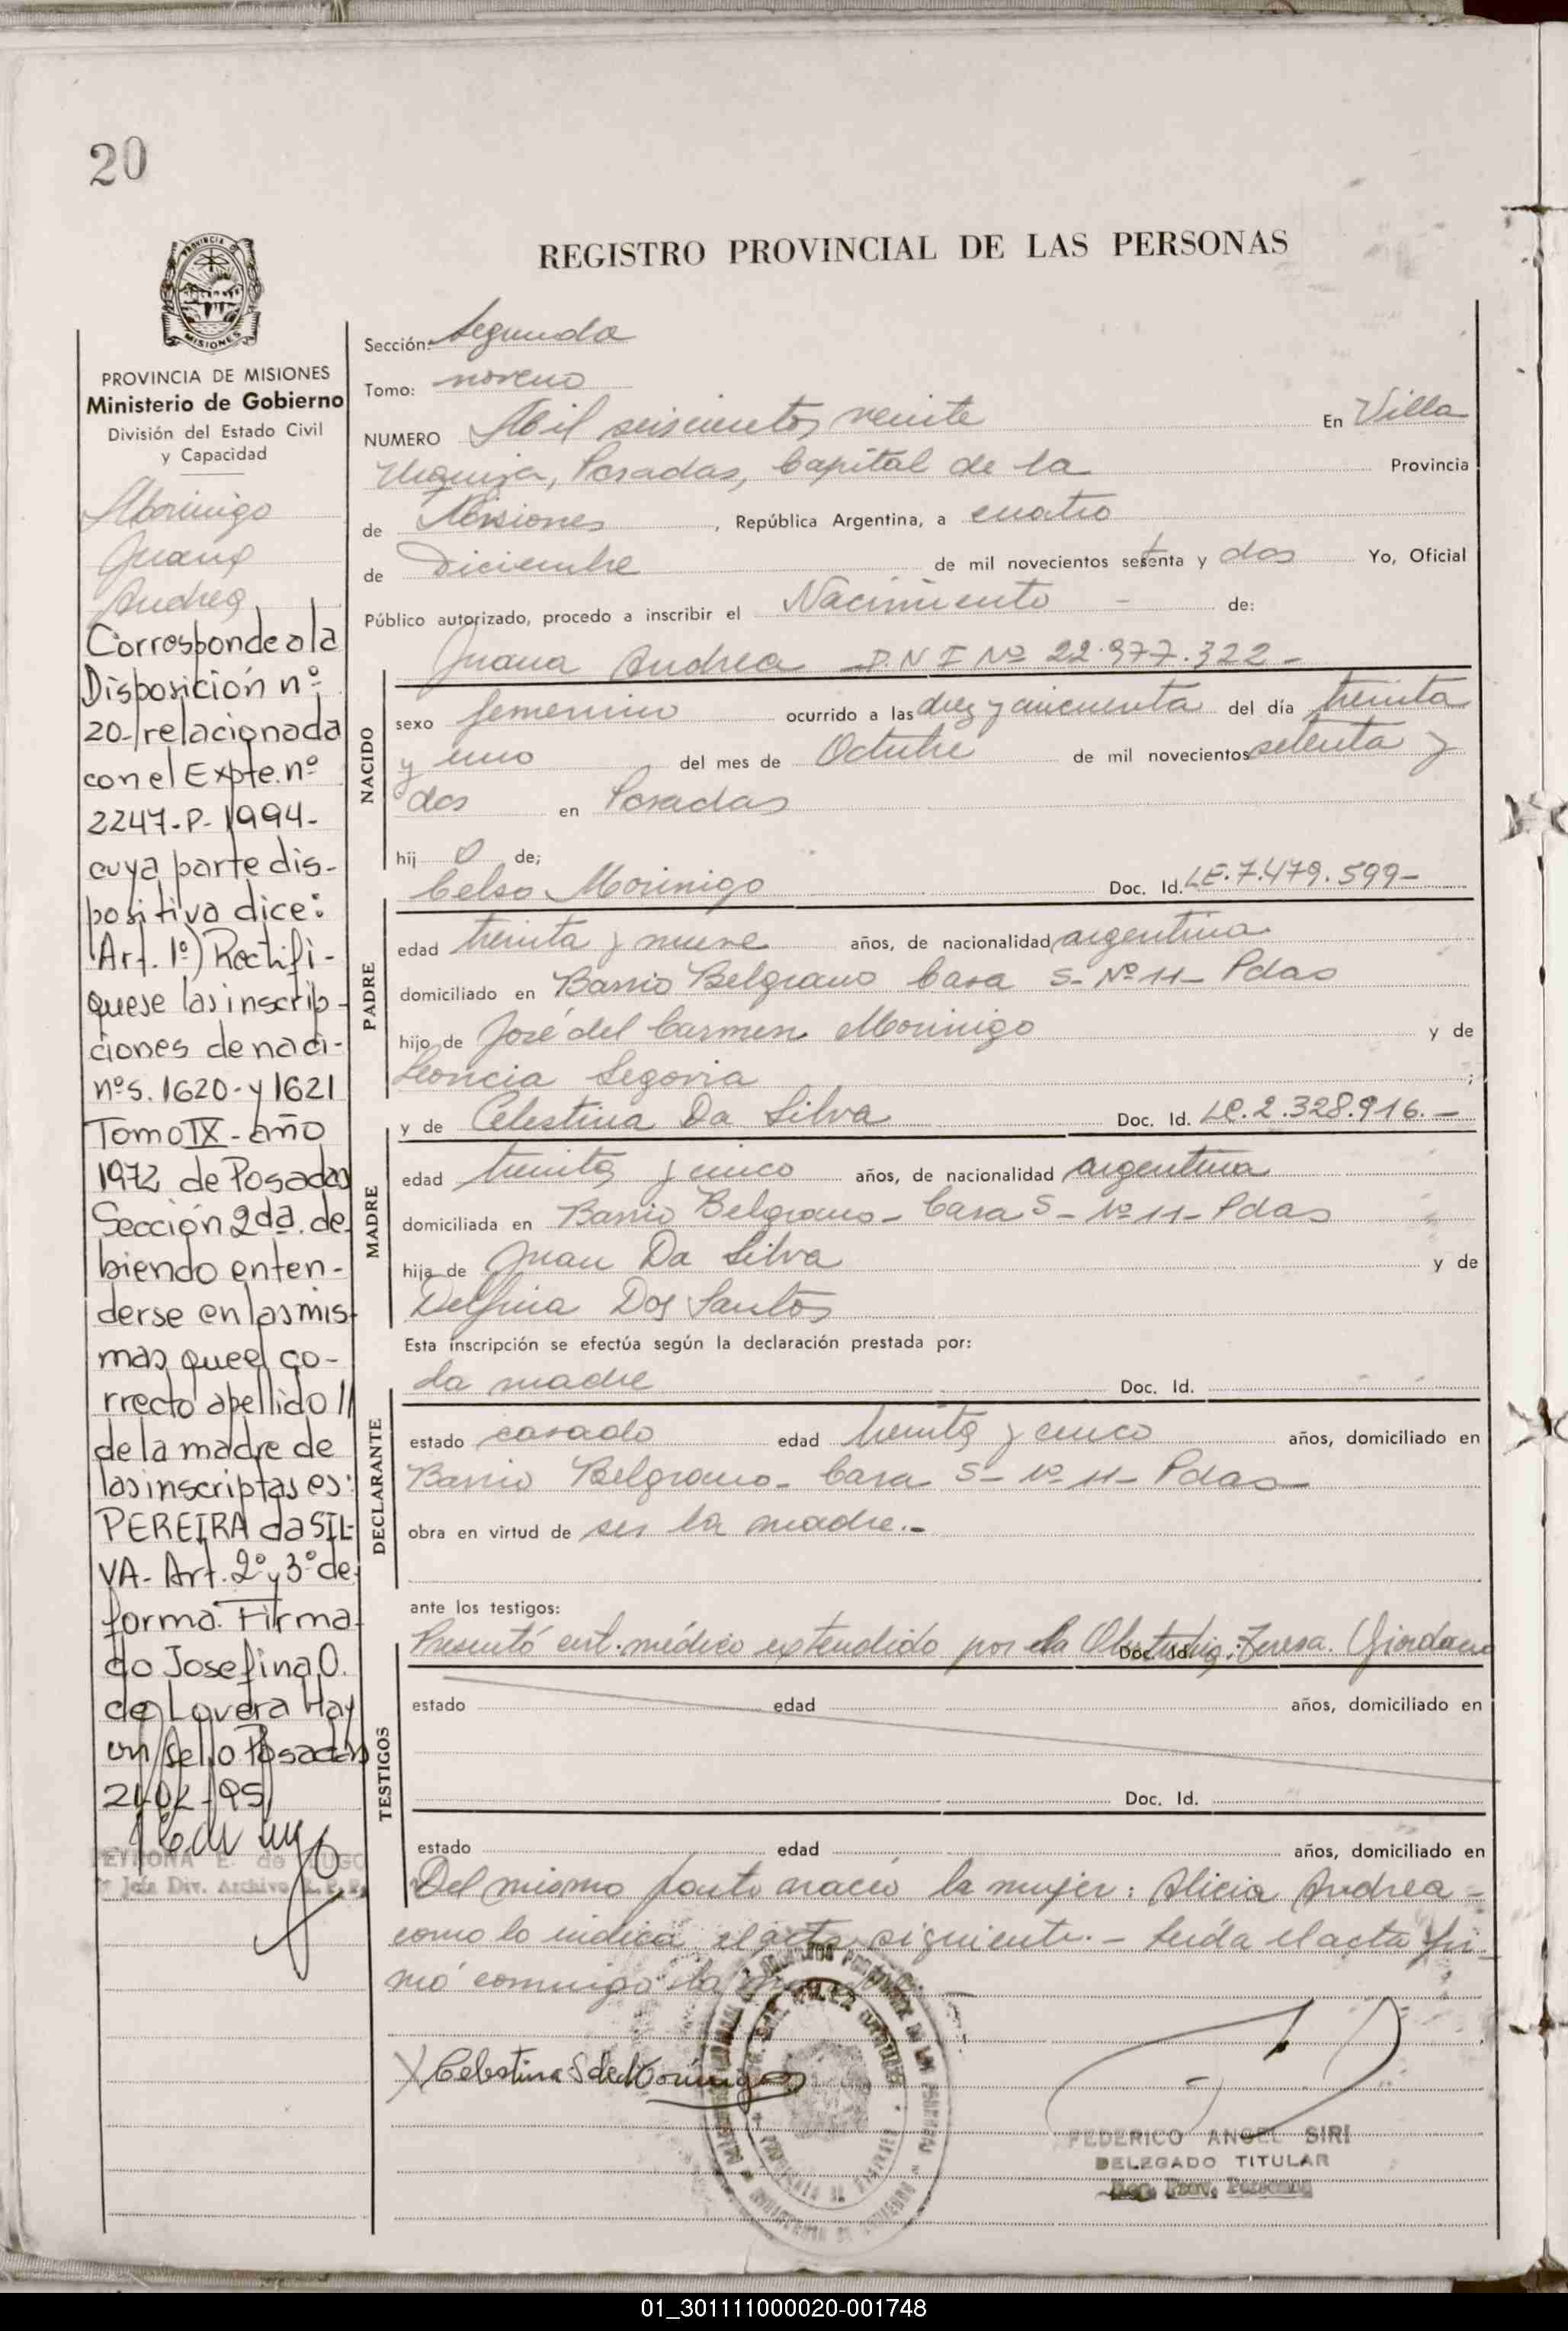 20
REGISTRO PROVINCIAL DE LAS PERSONAS
PROVINCIA DE
MISIONES
PROVINCIA DE MISIONES
Ministerio de Gobierno
División del Estado Civil
y Capacidad
Morinigo
Juana
Andrea
Corresponde a la
Disposición nº
20- relacionada
con el Expte. nº
2247-P-1994-
cuya parte dis-
positiva dice:
Art. 1º) Rectifi-
quese las inscrip-
ciones de naci-
nºs. 1620- y 1621
Tomo IX - año
1972 de Posadas
Sección 2da. de
biendo enten-
derse en las mis
mas que el co-
rrecto apellido //
de la madre de
las inscriptas es:
PEREIRA da SIL-
VA- Art. 2º y 3º de
forma. Firma
do Josefina O.
de Lovera Hay
un sello Posadas
21-02-95
Jefa Div. Archivo R. P. P.
Sección: Segunda
Tomo: noveno
NUMERO Mil seiscientos veinte En Villa
Urquiza, Posadas, Capital de la Provincia
de Misiones, República Argentina, a cuatro
de Diciembre de mil novecientos setenta y dos Yo, Oficial
Público autorizado, procedo a inscribir el Nacimiento - de:
Juana Andrea D.N.I Nº 22.977.322-
NACIDO
sexo femenino ocurrido a las diez y cincuenta del día treinta
y uno del mes de Octubre de mil novecientos setenta y
dos en Posadas
hij a de;
Celso Morinigo Doc. Id. LE.7.479.599-
PADRE
edad treinta y nueve años, de nacionalidad argentina
domiciliado en Barrio Belgrano Casa S- Nº 11- Pdas
hijo de José del Carmen Morinigo y de
Leoncia Segovia ;
y de Celestina Da Silva Doc. Id. LC.2.328.916.-
MADRE
edad treinta y cinco años, de nacionalidad argentina
domiciliada en Barrio Belgrano- Casa S- Nº 11- Pdas
hija de Juan Da Silva y de
Delfina Dos Santos
Esta inscripción se efectúa según la declaración prestada por:
la madre Doc. Id.
DECLARANTE
estado casado edad treinta y cinco años, domiciliado en
Barrio Belgrano- Casa S- Nº 11- Pdas-
obra en virtud de ser la madre.-
ante los testigos:
Presentó cert. médico extendido por la Obstetriz: Teresa. Giordano
Doc. Id.
TESTIGOS
estado edad años, domiciliado en
Doc. Id.
estado edad años, domiciliado en
Del mismo parto nació la mujer: Alicia Andrea-
como lo indica el acta siguiente.- Leída el acta fir-
mó conmigo la
X Celestina S de Morinigo
FEDERICO ANGEL SIRI
DELEGADO TITULAR
Reg. Prov. Personas
01_301111000020-001748